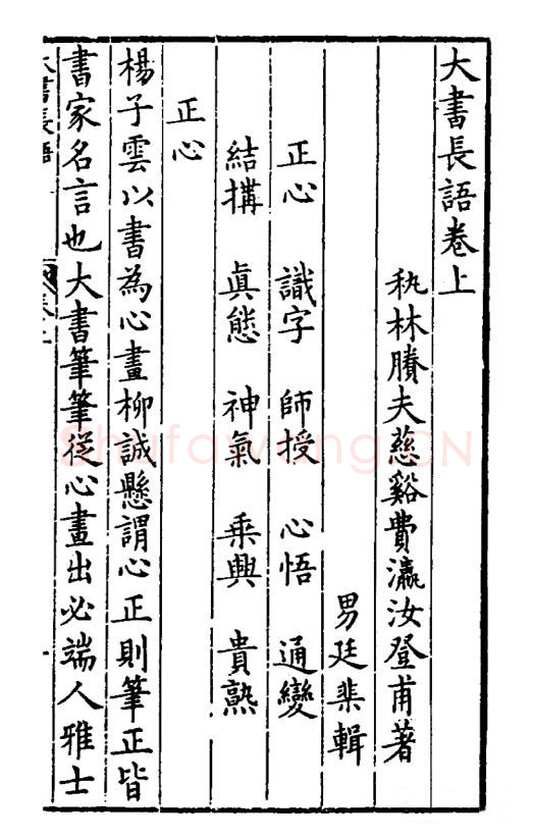 大書長語卷上
秇林賸夫慈谿費瀛汝登甫著
男廷棐輯
正心 識字 師授 心悟 通變
結搆 眞態 神氣 乘興 貴熟
正心
楊子雲以書為心畫柳誠懸謂心正則筆正皆
書家名言也大書筆筆從心畫出必端人雅士
大書長語 卷上 一
Shufawang.CN